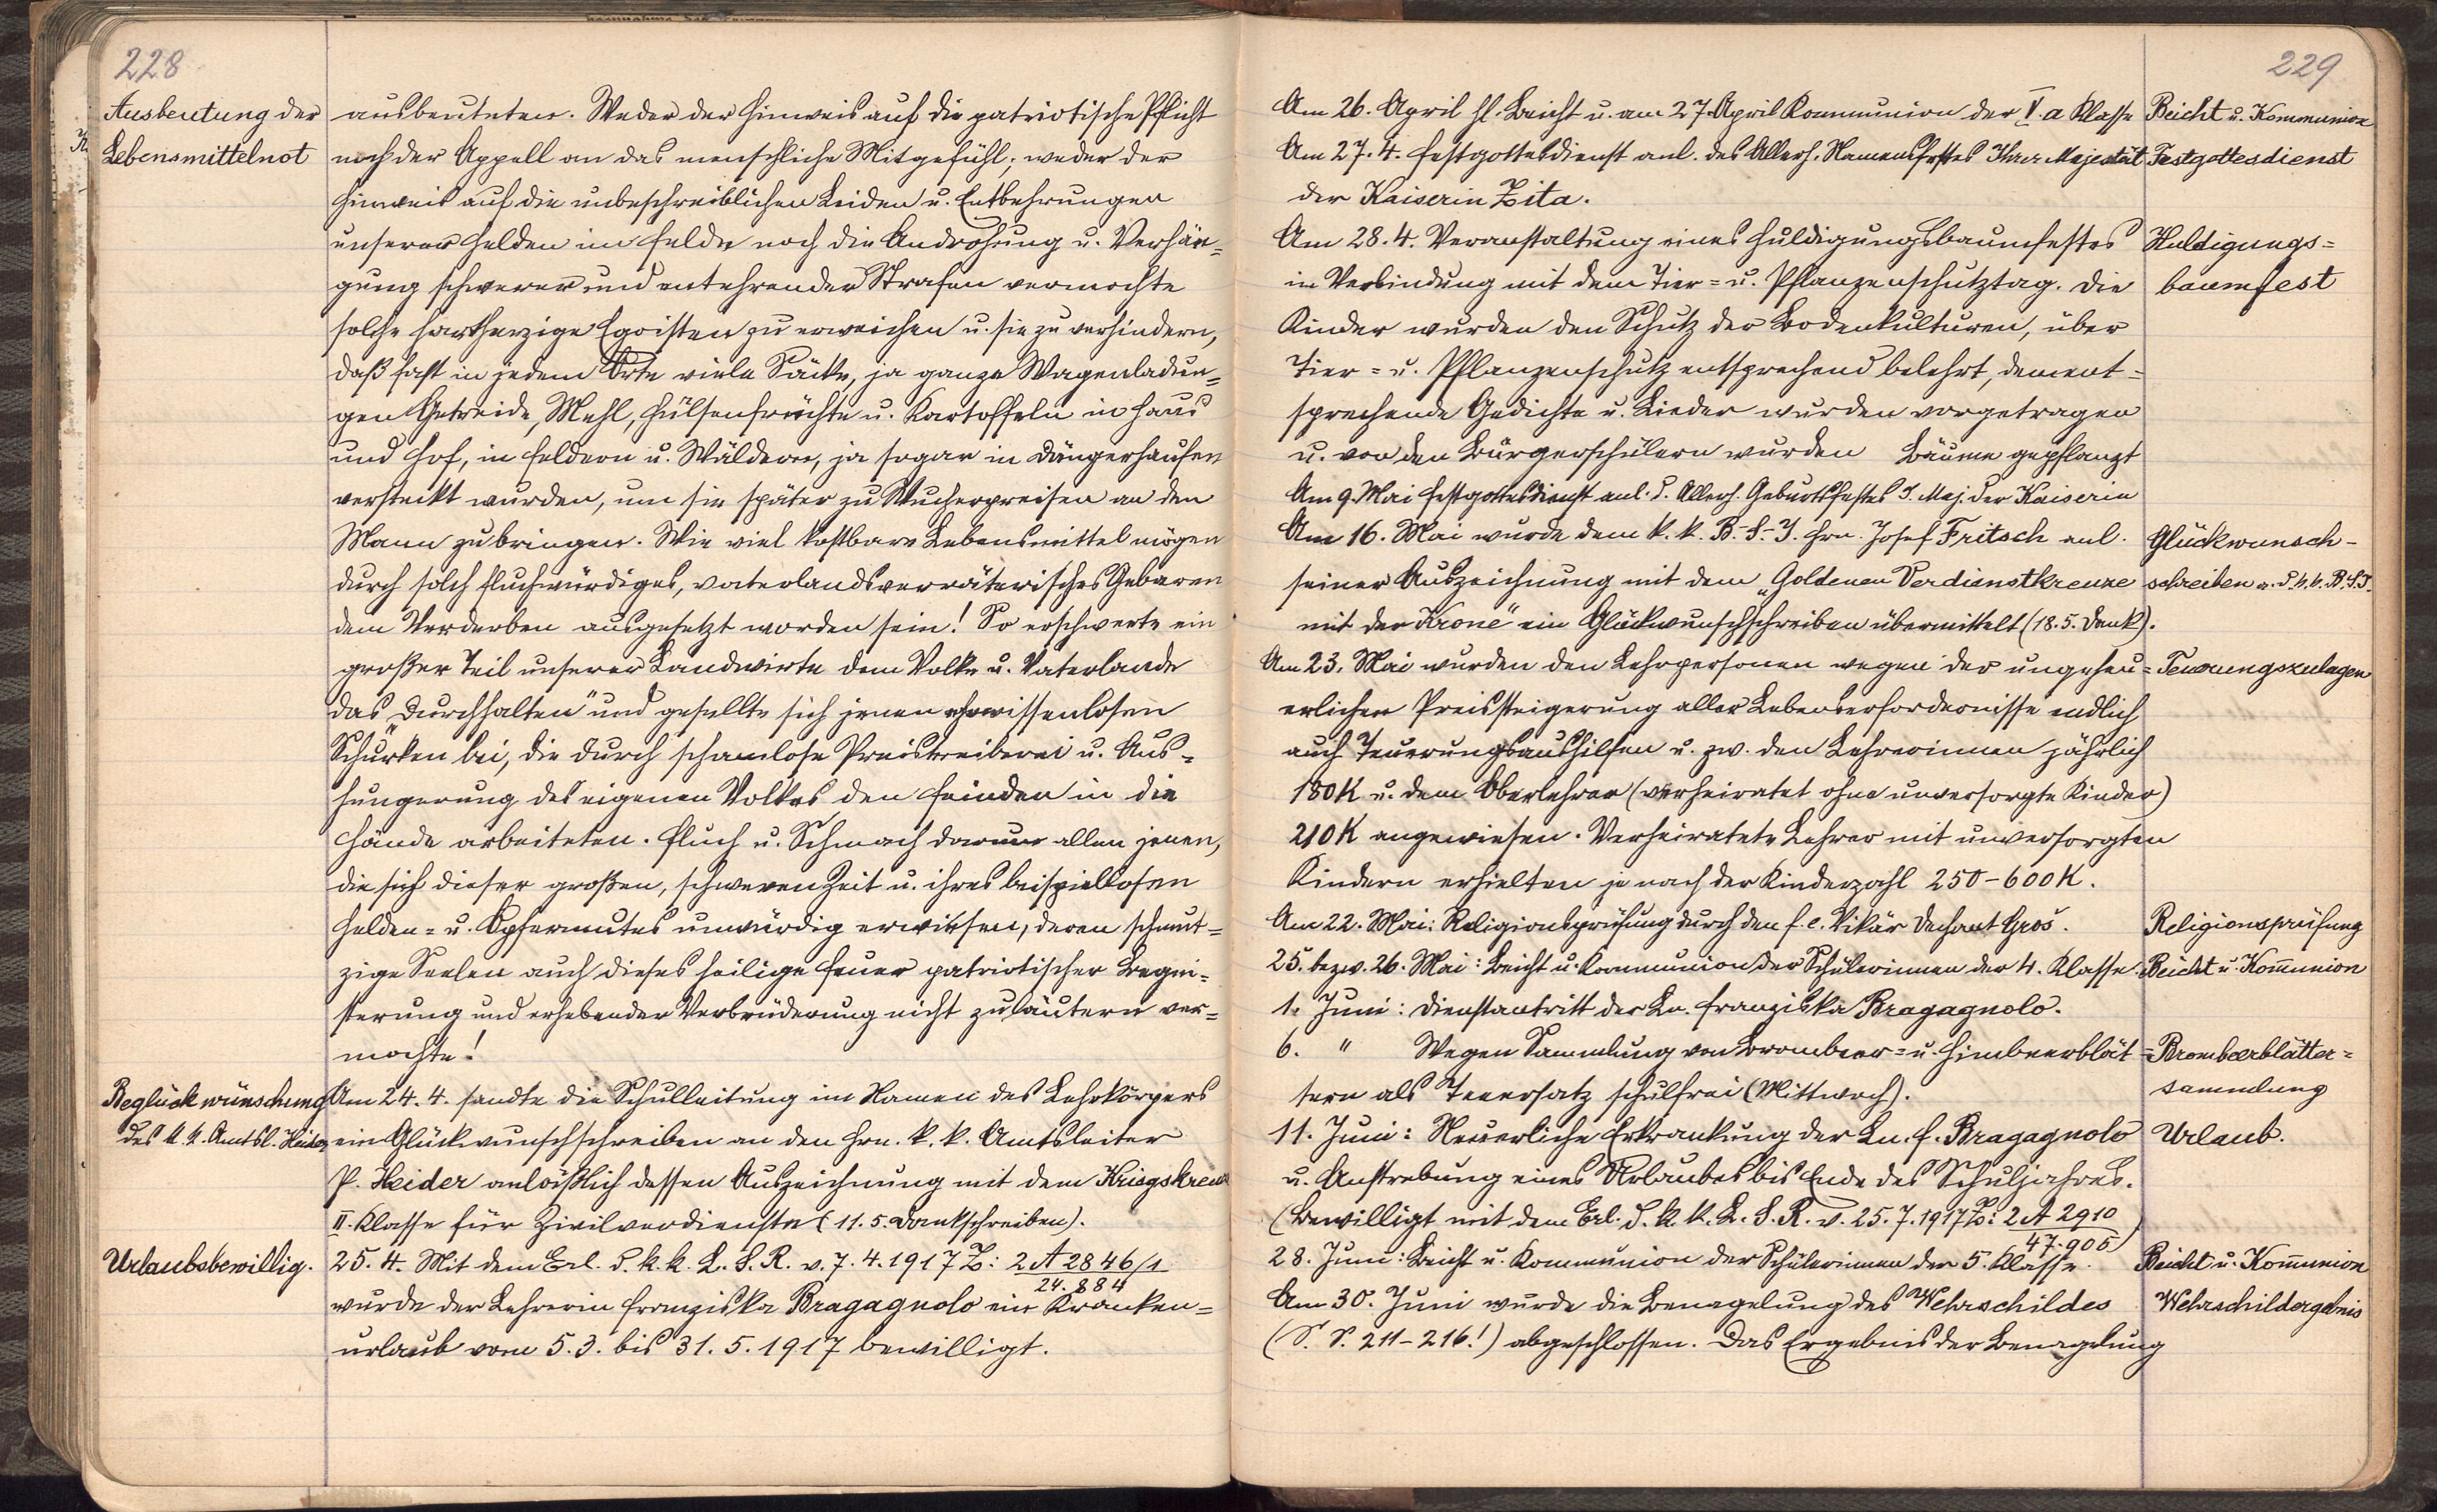 228
Ausbeutung der
Lebensmittelnot
ausbeuteten. Weder der Hinweis auf die patriotische Pflicht
noch der Appell an das menschliche Mitgefühl, weder der
Hinweis auf die unbeschreiblichen Leiden u. Entbehrungen
unserer Helden im Felde noch die Androhung u. Verhän=
gung schwerer und entehrender Strafen vermochte
solche hartherzige Egoisten zu erweichen u. sie zu verhindern,
daß fast in jedem Orte viele Säcke, ja ganze Wagenladun=
gen Getreide, Mehl, Hülsenfrüchte u. Kartoffeln in Haus
und Hof, in Feldern u. Wäldern, ja sogar in Düngerhaufen
versteckt wurden, um sie später zu Wucherpreisen an den
Mann zu bringen. Wie viel kostbare Lebensmittel mögen
durch solch fluchwürdiges, vaterlandsverräterisches Gebaren
dem Verderben ausgesetzt worden sein! So erschwerte ein
großer Teil unserer Landwirte dem Volke u. Vaterlande
das „Durchhalten“ und gesellte sich jenen gewissenlosen
Schurken bei, die durch schamlose Preistreiberei u. Aus=
hungerung des eigenen Volkes den Feinden in die
Hände arbeiteten. Fluch u. Schmach darum allen jenen,
die sich dieser großen, schweren Zeit u. ihres beispiellosen
Helden= u. Opfermutes unwürdig erwiesen, deren schmut=
zige Seelen auch dieses heilige Feuer patriotischer Begei=
sterung und erhebender Verbrüderung nicht zu läutern ver=
mochte!
Beglückwünschung
des k. k. Amtsl. Heider
Am 24. 4. sandte die Schulleitung im Namen des Lehrkörpers
ein Glückwunschschreiben an den Hrn. k. k. Amtsleiter
P. Heider anläßlich dessen Auszeichnung mit dem Kriegskreuz
II. Klasse für Zivilverdienste (11. 5. Dankschreiben).
Urlaubsbewillig.
25. 4. Mit dem Erl. d. k. k. L. S. R. v. 7. 4. 1917 Z: 2 A 2846/1
24.884
wurde der Lehrerin Franziska Bragagnolo ein Kranken=
urlaub vom 5. 3. bis 31. 5. 1917 bewilligt.
229
Am 26. April hl. Beicht u. am 27. April Kommunion der V. a Klasse
Beicht u. Kommunion
Am 27. 4. Festgottesdienst anl. des Allerh. Namensfestes Ihrer Majestät
Festgottesdienst
der Kaiserin Zita.
Am 28. 4. Veranstaltung eines Huldigungsbaumfestes
Huldigungs=
in Verbindung mit dem Tier= u. Pflanzenschutztag. Die
baumfest
Kinder wurden den Schutz der Bodenkulturen, über
Tier= u. Pflanzenschutz entsprechend belehrt, dement=
sprechende Gedichte u. Lieder wurden vorgetragen
u. von den Bürgerschülern wurden Bäume gepflanzt
Am 9. Mai Festgottesdienst anl. d. Allerh. Geburtsfestes I. Maj. der Kaiserin
Am 16. Mai wurde dem k. k. B.-S.-I. Hrn. Josef Fritsch anl.
Glückwunsch-
seiner Auszeichnung mit dem „Goldenen Verdienstkreuze
schreiben a. d. k. k. B. S. I.
mit der Krone“ ein Glückwunschschreiben übermittelt (18. 5. Dank).
Am 23. Mai wurden den Lehrpersonen wegen der ungeheu=
Teuerungszulagen
erlichen Preissteigerung aller Lebenserfordernisse endlich
auch Teuerungsaushilfen u. zw. den Lehrerinnen jährlich
180 K u. dem Oberlehrer (verheiratet ohne unversorgte Kinder)
210 K angewiesen. Verheiratete Lehrer mit unversorgten
Kindern erhielten je nach der Kinderzahl 250-600 K.
Am 22. Mai: Religionsprüfung durch den f. e. Vikär Dechant Gros.
Religionsprüfung
25. bezw. 26. Mai: Beicht u. Kommunion der Schülerinnen der 4. Klasse.
Beicht u. Kom̄union
1. Juni: Dienstantritt der Ln. Franziska Bragagnolo.
6. " Wegen Sammlung von Brombeer= u. Himbeerblät=
Brombeerblätter=
tern als Teeersatz schulfrei (Mittwoch).
sammlung
11. Juni: Neuerliche Erkrankung der Ln. F. Bragagnolo
Urlaub.
u. Anstrebung eines Urlaubes bis Ende des Schuljahres.
(Bewilligt mit dem Erl. d. k. k. L. S. R. v. 25. 7. 1917 Z: 2 A 2910
47.905)
28. Juni: Beicht u. Kommunion der Schülerinnen der 5. Klasse.
Beicht u. Kom̄union
Am 30. Juni wurde die Benagelung des Wehrschildes
Wehrschildergebnis
(S. S. 211-216!) abgeschlossen. Das Ergebnis der Benagelung